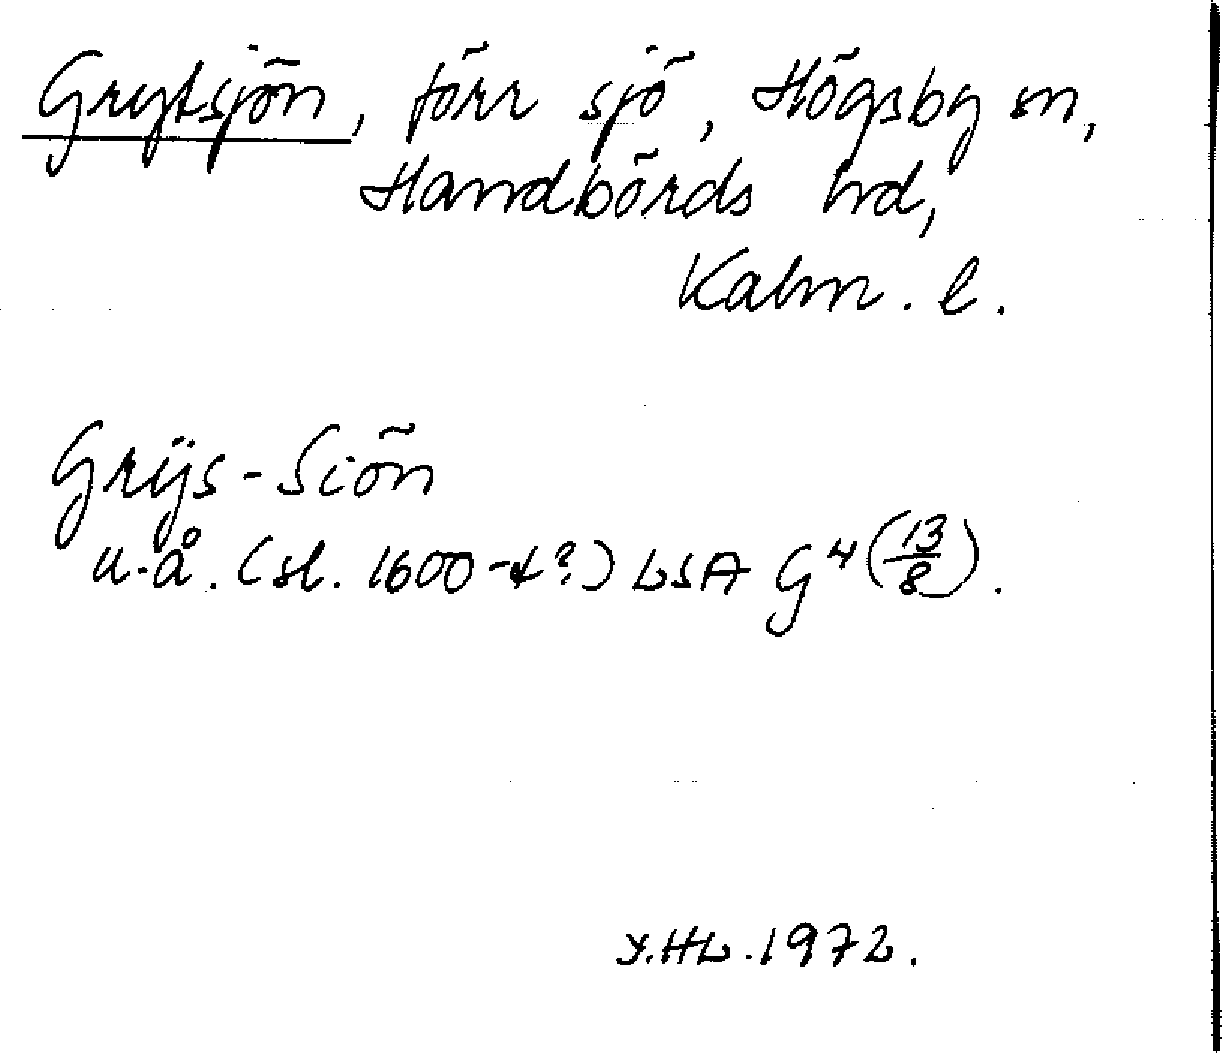 Grytsjön, förr sjö, Högsby sn,
Handbörds hd,
Kalm. l.
Grÿs-Siön
u.å. (sl. 1600-t?) LSA G4 (13/8).
Y.HL. 1972.